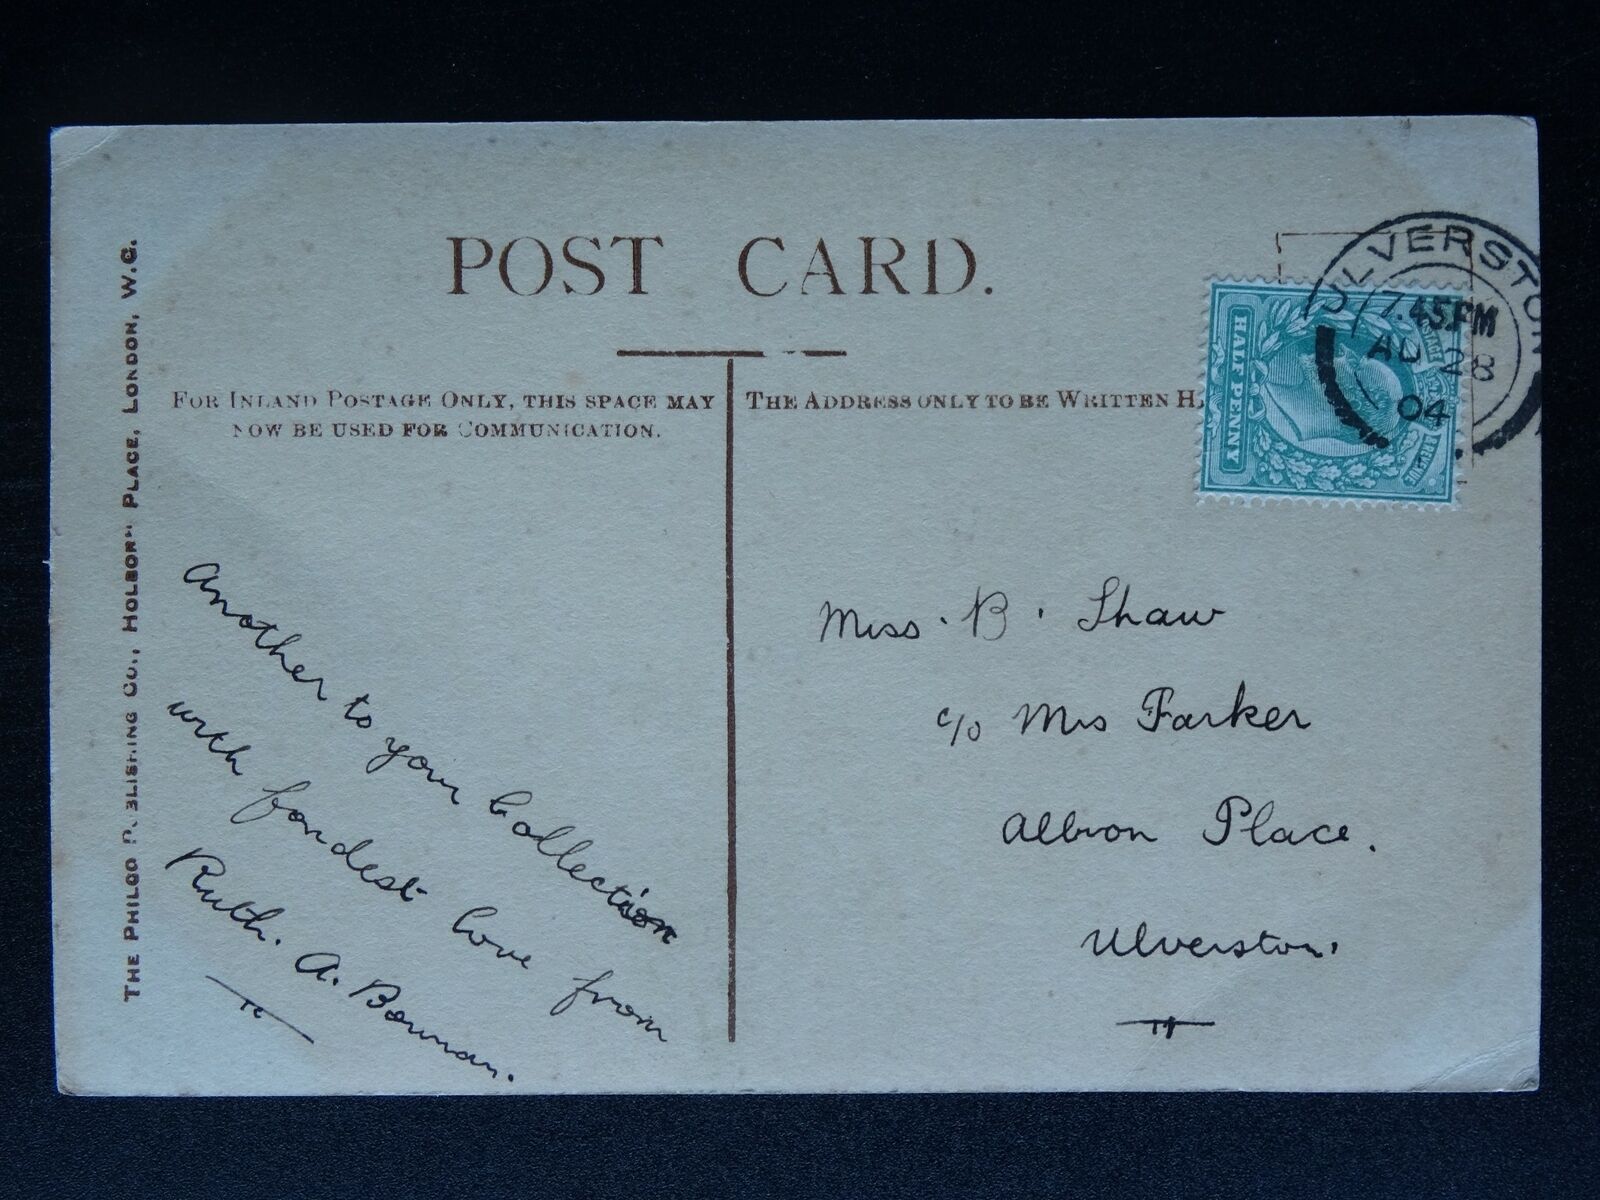 POST CARD.
FOR INLAND POSTAGE ONLY, THIS SPACE MAY
NOW BE USED FOR COMMUNICATION.
THE ADDRESS ONLY TO BE WRITTEN H
THE PHILCO PUBLISHING CO., HOLBORN PLACE, LONDON, W.C.
ULVERSTON
7.45 PM
AU 28
04
HALF PENNY
POSTAGE
Another to your Collection
with fondest love from
Ruth. A. Bowman.
Miss. B. Shaw
c/o Mrs Parker
Albion Place.
Ulverston.